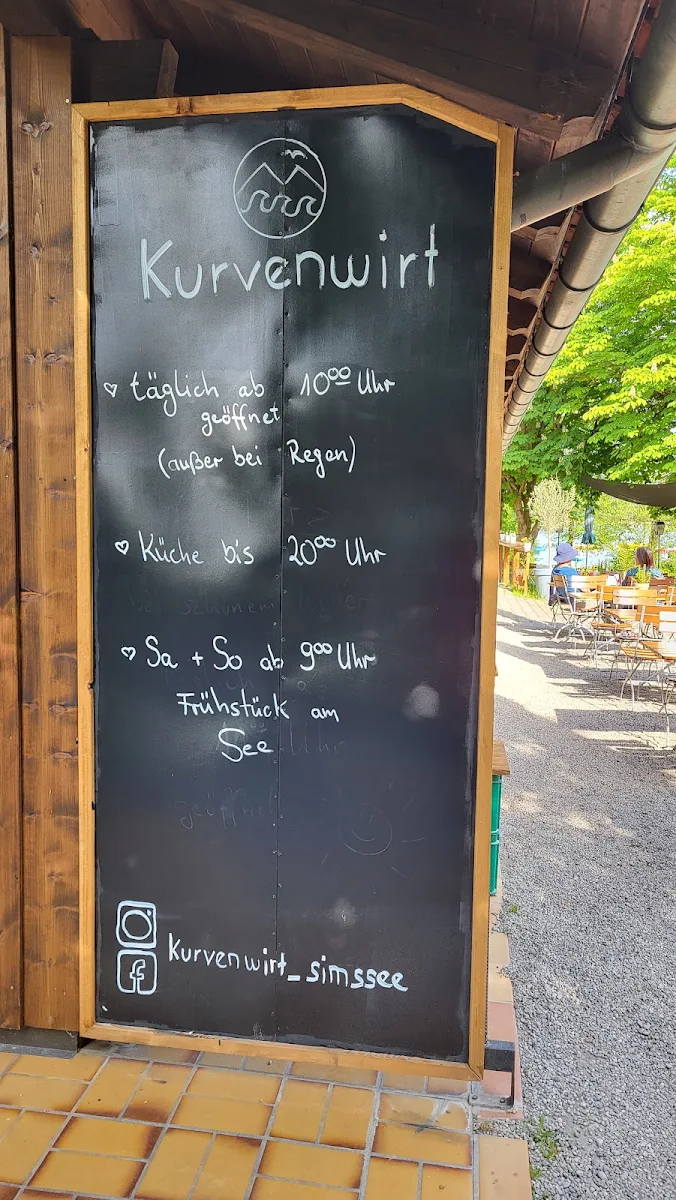 Kurvenwirt
♡ täglich ab 10⁰⁰ Uhr
geöffnet
(außer bei Regen)
♡ Küche bis 20⁰⁰ Uhr
♡ Sa + So ab 9⁰⁰ Uhr
Frühstück am
See
Kurvenwirt_simssee